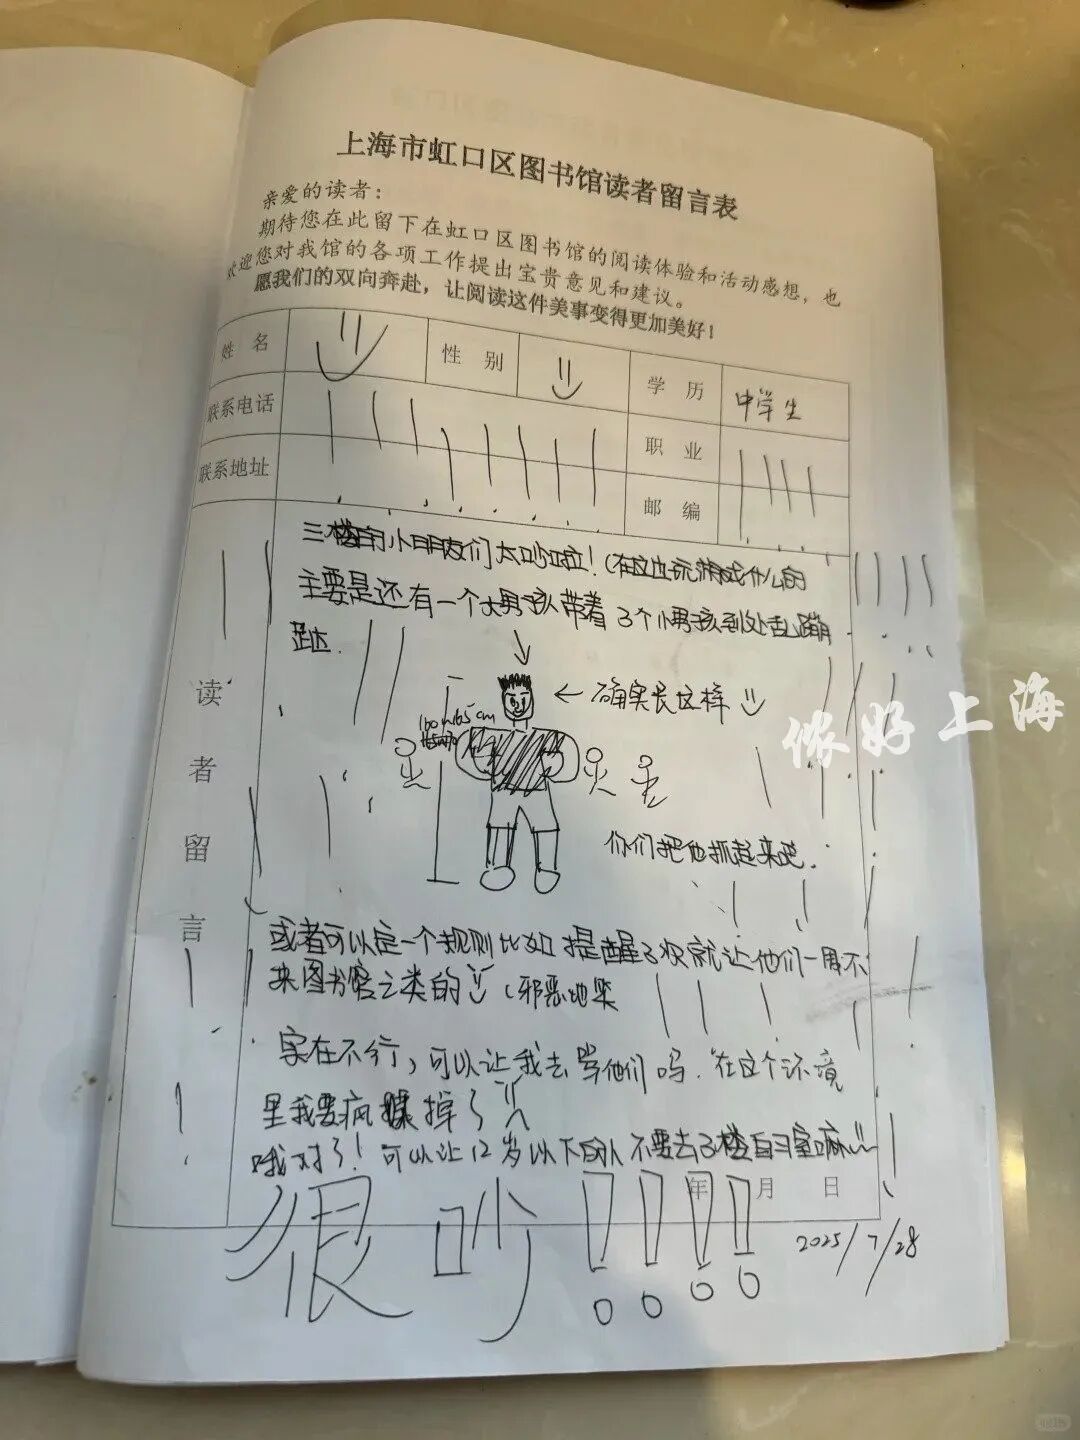 上海市虹口区图书馆读者留言表
亲爱的读者：
期待您在此留下在虹口区图书馆的阅读体验和活动感想，也
欢迎您对我馆的各项工作提出宝贵意见和建议。
愿我们的双向奔赴，让阅读这件美事变得更加美好！
姓 名
性 别
学 历 中学生
联系电话
职 业
联系地址
邮 编
读者留言
三楼的小朋友们太吵啦！(在这边玩游戏什么的
主要是还有一个大男孩带着3个小男孩到处乱蹦
跶.
← 确实长这样
160~165cm
你们把他抓起来吧.
或者可以定一个规则比如提醒3次就让他们一周不
来图书馆之类的 (邪恶地笑
实在不行，可以让我去骂他们吗.在这个环境
里我要疯掉了
哦对了！可以让12岁以下的人不要去3楼自习室嘛
年 月 日
很吵！！！！
2025/7/28
侬好上海